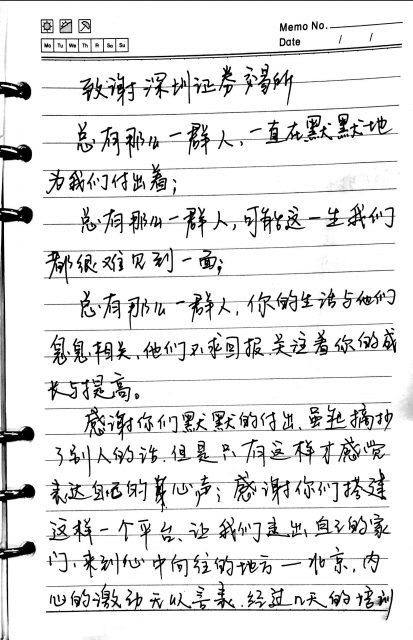 Memo No.
Mo Tu We Th Fr Sa Su
Date / /
致谢深圳证券交易所
总有那么一群人，一直在默默地
为我们付出着；
总有那么一群人，可能这一生我们
都很难见到一面；
总有那么一群人，你的生活与他们
息息相关，他们不求回报，关注着你的成
长与提高。
感谢你们默默的付出，虽然摘抄
了别人的话，但是只有这样才感觉
表达自己的心声；感谢你们搭建
这样一个平台，让我们走出自己的家
门，来到心中向往的地方—北京，内
心的激动无以言表，经过几天的培训